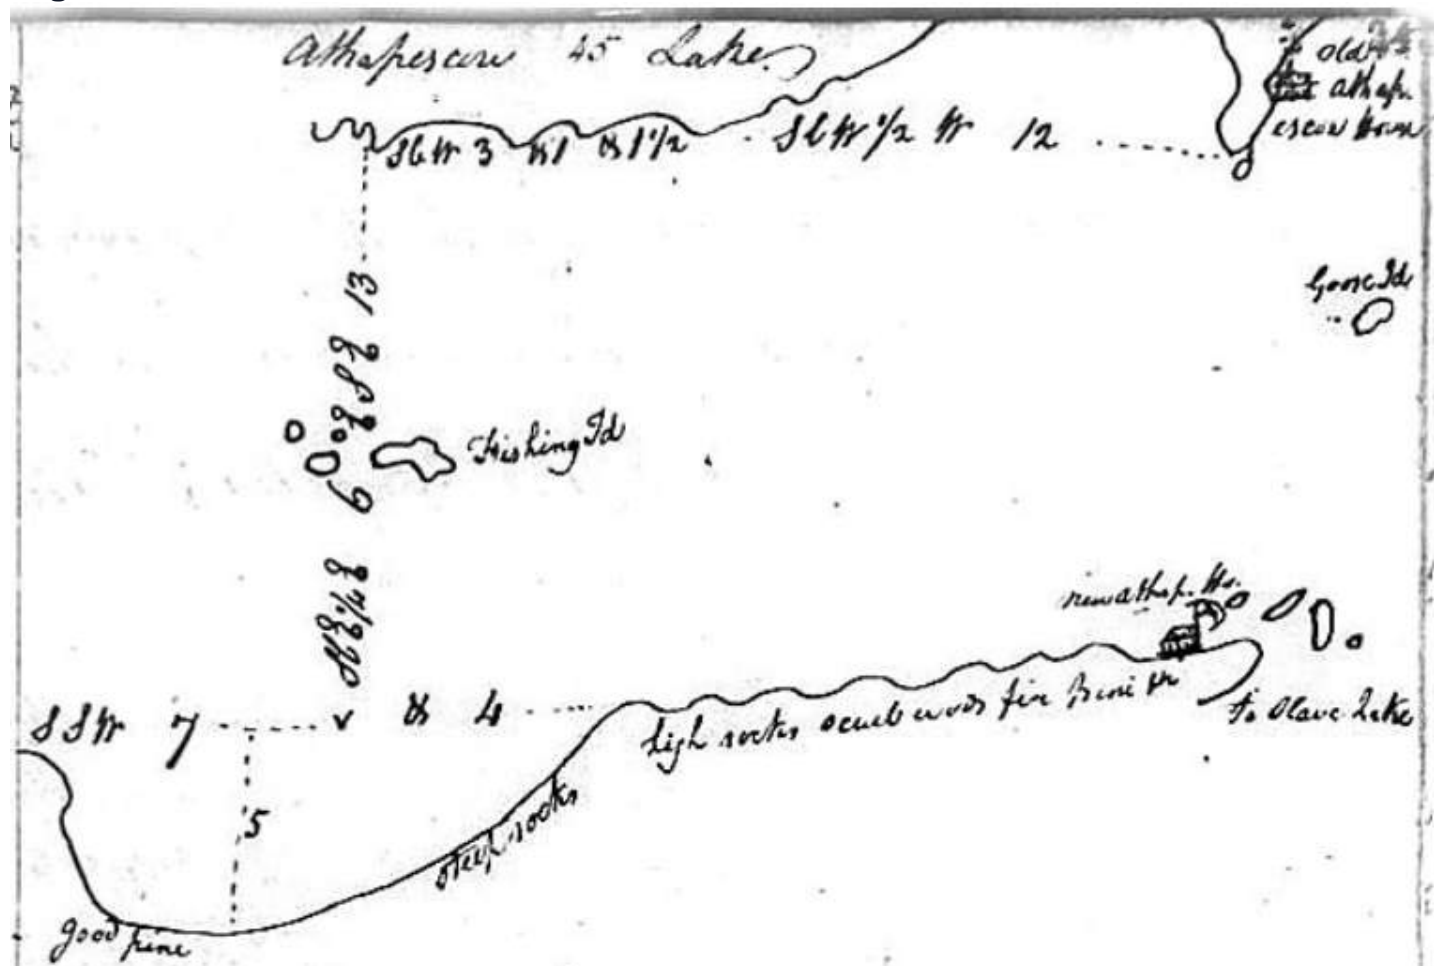 Athapescow 45 Lake
24
to old
Athap.
escow House
SbW 3 & 1 & 1 1/2 SbW 1/2 W 12
Goose Id
13
Fishing Id
6
new Athap. Ho.
SSW 7 & 4
high rocks scrub woods fir
to Slave Lake
5
steep rocks
good pine